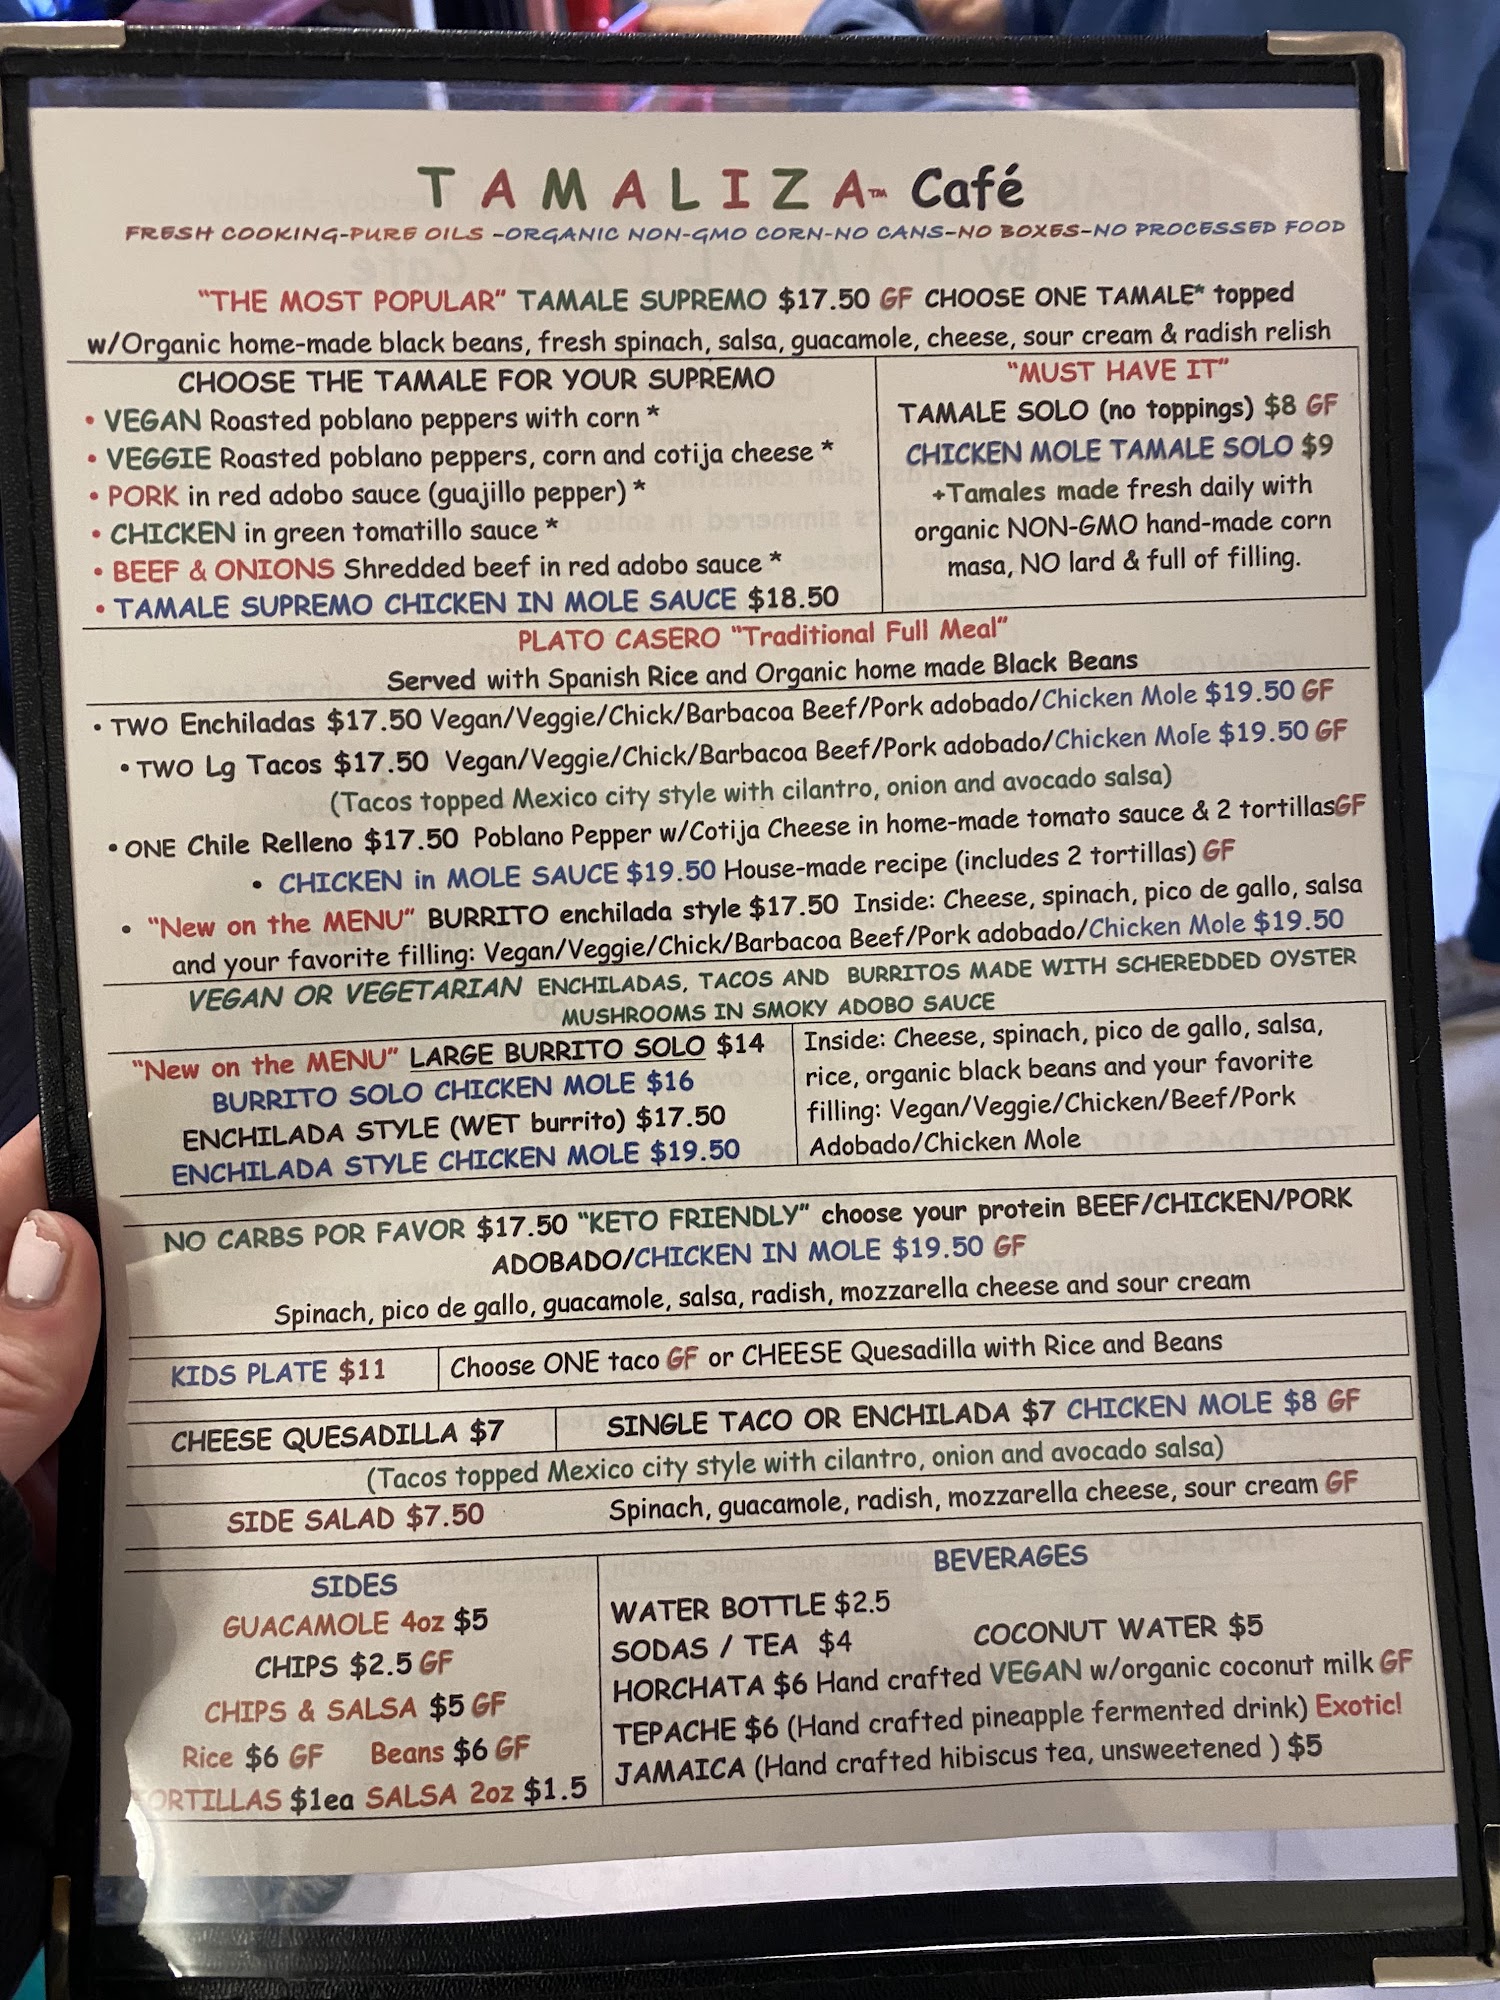 TAMALIZA™ Café
FRESH COOKING-PURE OILS -ORGANIC NON-GMO CORN-NO CANS-NO BOXES-NO PROCESSED FOOD
"THE MOST POPULAR" TAMALE SUPREMO $17.50 GF CHOOSE ONE TAMALE* topped
w/Organic home-made black beans, fresh spinach, salsa, guacamole, cheese, sour cream & radish relish
CHOOSE THE TAMALE FOR YOUR SUPREMO
• VEGAN Roasted poblano peppers with corn *
• VEGGIE Roasted poblano peppers, corn and cotija cheese *
• PORK in red adobo sauce (guajillo pepper) *
• CHICKEN in green tomatillo sauce *
• BEEF & ONIONS Shredded beef in red adobo sauce *
• TAMALE SUPREMO CHICKEN IN MOLE SAUCE $18.50
"MUST HAVE IT"
TAMALE SOLO (no toppings) $8 GF
CHICKEN MOLE TAMALE SOLO $9
+Tamales made fresh daily with
organic NON-GMO hand-made corn
masa, NO lard & full of filling.
PLATO CASERO "Traditional Full Meal"
Served with Spanish Rice and Organic home made Black Beans
• TWO Enchiladas $17.50 Vegan/Veggie/Chick/Barbacoa Beef/Pork adobado/Chicken Mole $19.50 GF
• TWO Lg Tacos $17.50 Vegan/Veggie/Chick/Barbacoa Beef/Pork adobado/Chicken Mole $19.50 GF
(Tacos topped Mexico city style with cilantro, onion and avocado salsa)
• ONE Chile Relleno $17.50 Poblano Pepper w/Cotija Cheese in home-made tomato sauce & 2 tortillasGF
• CHICKEN in MOLE SAUCE $19.50 House-made recipe (includes 2 tortillas) GF
• "New on the MENU" BURRITO enchilada style $17.50 Inside: Cheese, spinach, pico de gallo, salsa
and your favorite filling: Vegan/Veggie/Chick/Barbacoa Beef/Pork adobado/Chicken Mole $19.50
VEGAN OR VEGETARIAN ENCHILADAS, TACOS AND BURRITOS MADE WITH SCHEREDDED OYSTER
MUSHROOMS IN SMOKY ADOBO SAUCE
"New on the MENU" LARGE BURRITO SOLO $14
BURRITO SOLO CHICKEN MOLE $16
ENCHILADA STYLE (WET burrito) $17.50
ENCHILADA STYLE CHICKEN MOLE $19.50
Inside: Cheese, spinach, pico de gallo, salsa,
rice, organic black beans and your favorite
filling: Vegan/Veggie/Chicken/Beef/Pork
Adobado/Chicken Mole
NO CARBS POR FAVOR $17.50 "KETO FRIENDLY" choose your protein BEEF/CHICKEN/PORK
ADOBADO/CHICKEN IN MOLE $19.50 GF
Spinach, pico de gallo, guacamole, salsa, radish, mozzarella cheese and sour cream
KIDS PLATE $11 Choose ONE taco GF or CHEESE Quesadilla with Rice and Beans
CHEESE QUESADILLA $7 SINGLE TACO OR ENCHILADA $7 CHICKEN MOLE $8 GF
(Tacos topped Mexico city style with cilantro, onion and avocado salsa)
SIDE SALAD $7.50 Spinach, guacamole, radish, mozzarella cheese, sour cream GF
SIDES
GUACAMOLE 4oz $5
CHIPS $2.5 GF
CHIPS & SALSA $5 GF
Rice $6 GF Beans $6 GF
ORTILLAS $1ea SALSA 2oz $1.5
BEVERAGES
WATER BOTTLE $2.5
SODAS / TEA $4 COCONUT WATER $5
HORCHATA $6 Hand crafted VEGAN w/organic coconut milk GF
TEPACHE $6 (Hand crafted pineapple fermented drink) Exotic!
JAMAICA (Hand crafted hibiscus tea, unsweetened ) $5